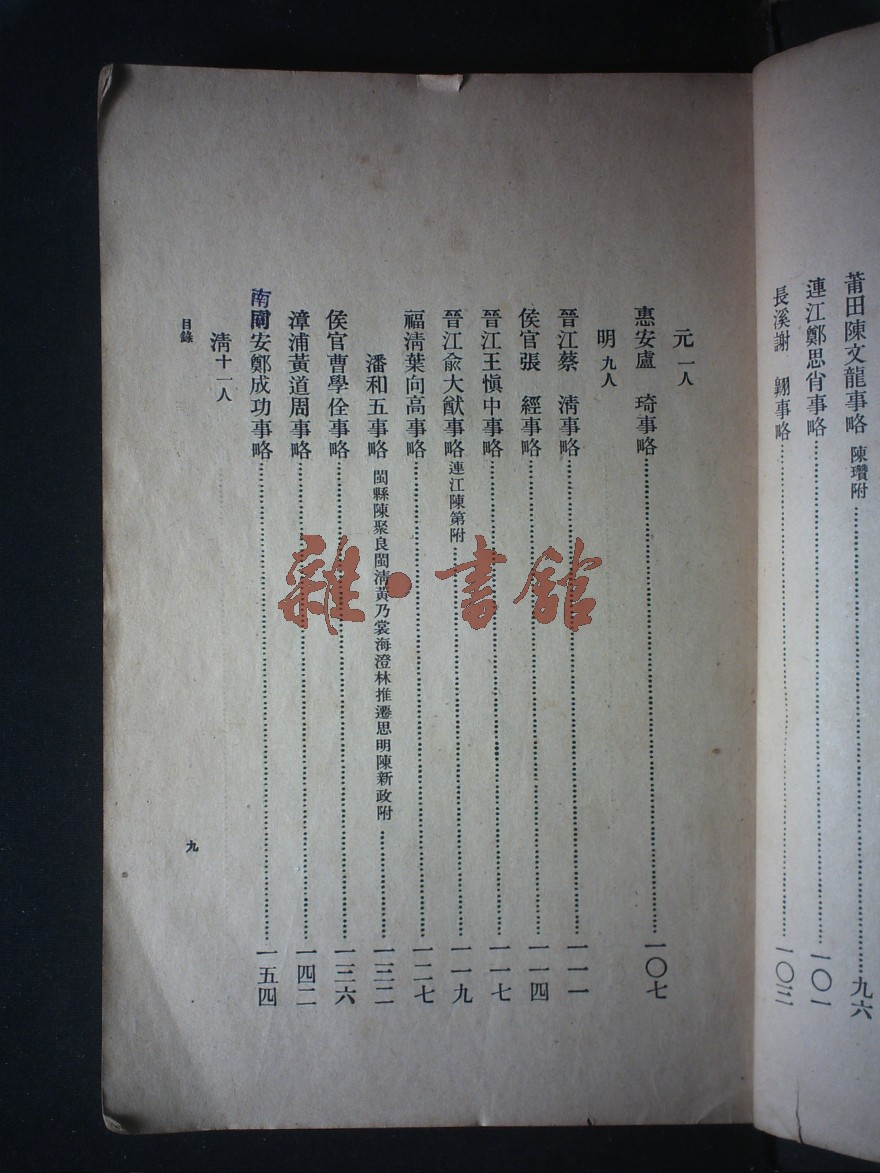 莆田陳文龍事略 陳瓚附……九六
連江鄭思肖事略……一〇一
長溪謝 翺事略……一〇三
元 一人
惠安盧 琦事略……一〇七
明 九人
晉江蔡 淸事略……一一一
侯官張 經事略……一一四
晉江王愼中事略……一一七
晉江兪大猷事略 連江陳第附……一一九
福淸葉向高事略……一二七
潘和五事略 閩縣陳聚良閩淸黃乃裳海澄林推遷思明陳新政附……一三二
侯官曹學佺事略……一三六
漳浦黃道周事略……一四二
南安鄭成功事略……一五四
淸 十一人
目錄
九
雜·書館